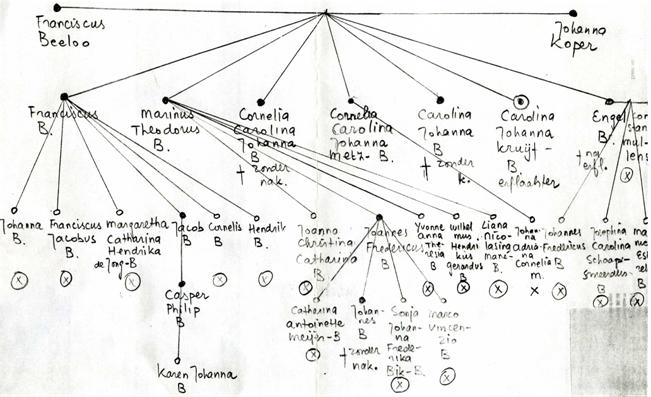 Franciscus
Beeloo
Johanna
Koper
Franciscus
B.
Marinus
Theodorus
B.
Cornelia
Carolina
Johanna
B
† zonder
nak.
Cornelia
Carolina
Johanna
Metz-B.
Carolina
Johanna
B
† zonder
k.
Carolina
Johanna
Kruijt-
B
erflaahter
Engel
B.
Johanna
B.
Franciscus
Jacobus
B.
X
Margaretha
Catharina
Hendrika
de Jong-B
X
Jacob
B
Cornelis
B
X
Hendrik
B.
X
Joanna
Christina
Catharina
B
X
Joannes
Fredericus
B
Yvonne
Anna
The-
resia B
X
Wilhel
mus
Hendri
kus
gerardus B.
X
Liana
Nico-
lasina
B.
X
Joha-
na
adria-
na
Cornelia
m.
X
Johannes
Fredericus
B
X
Josephina
Carolina
Schoaps-
B
X
X
Casper
Philip
B
Karen Johanna
B
Catharina
antoinette
meijer-B
X
Johan-
nes
B
† zonder
nak.
Sonja
Johan-
na
Frede-
rika
Bik-B.
X
Marco
Vincen-
zio
B
X